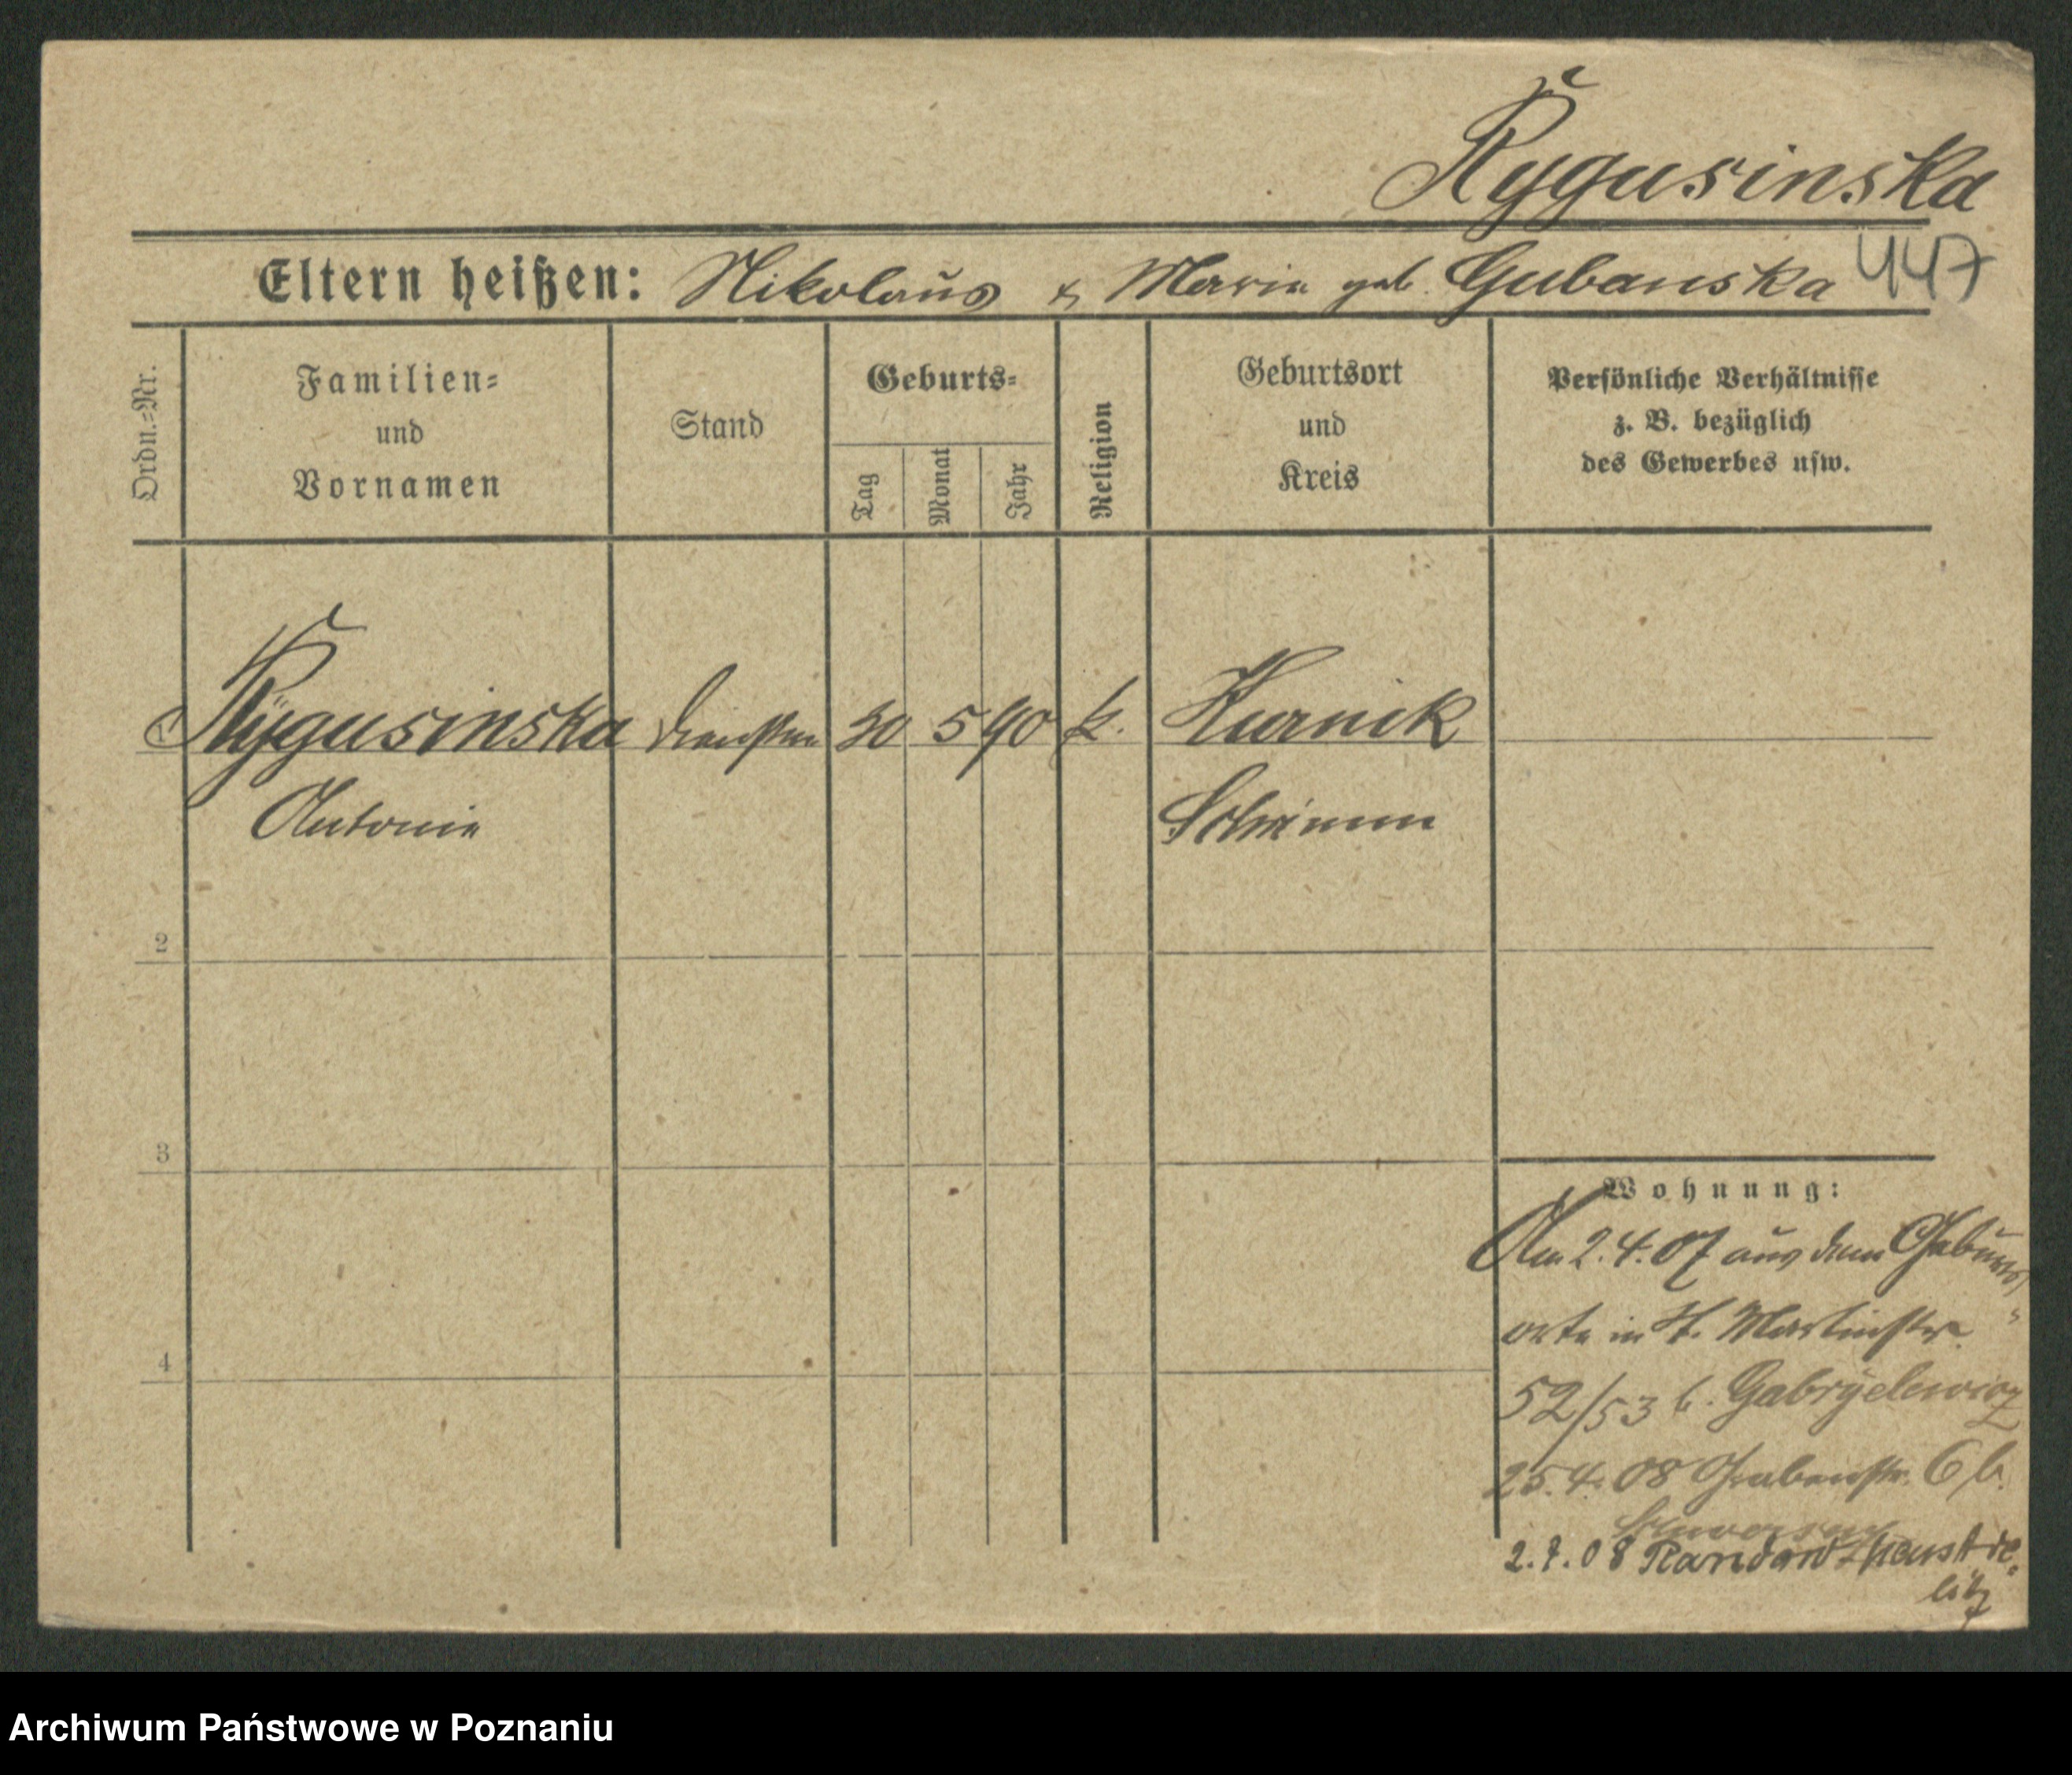 Rygusinska
Eltern heißen: Nikolaus & Marie geb. Gubanska 447
Ordn.-Nr.
Familien-
und
Vornamen
Stand
Geburts-
Tag
Monat
Jahr
Religion
Geburtsort
und
Kreis
Persönliche Verhältnisse
z. B. bezüglich
des Gewerbes usw.
1 Rygusinska 30 5 90 k. Kurnik
Antonie Schrimm
2
3
4
Wohnung:
Am 2.4.07 aus dem Geburts-
orte in St. Martinstr.
52/53 b. Gabryelewicz
25.4.08 Grabenstr. 6 b.
2.7.08
Archiwum Państwowe w Poznaniu